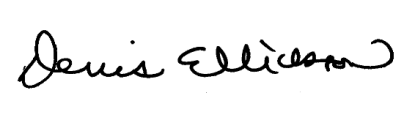 Denis Ellickson